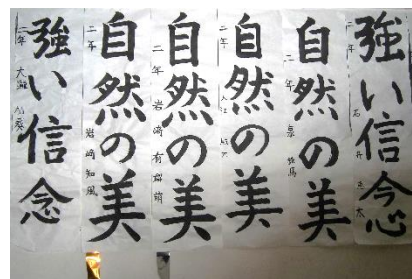 強い信念
二年
自然の美
二年
自然の美
二年
自然の美
二年 岩崎有部萌
自然の美
二年 岩崎知風
強い信念
二年 大